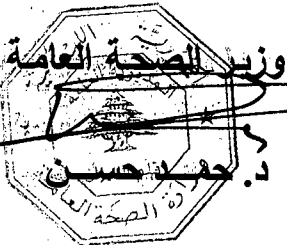 وزير الصحة العامة
د. حمد حسن
وزارة الصحة العامة